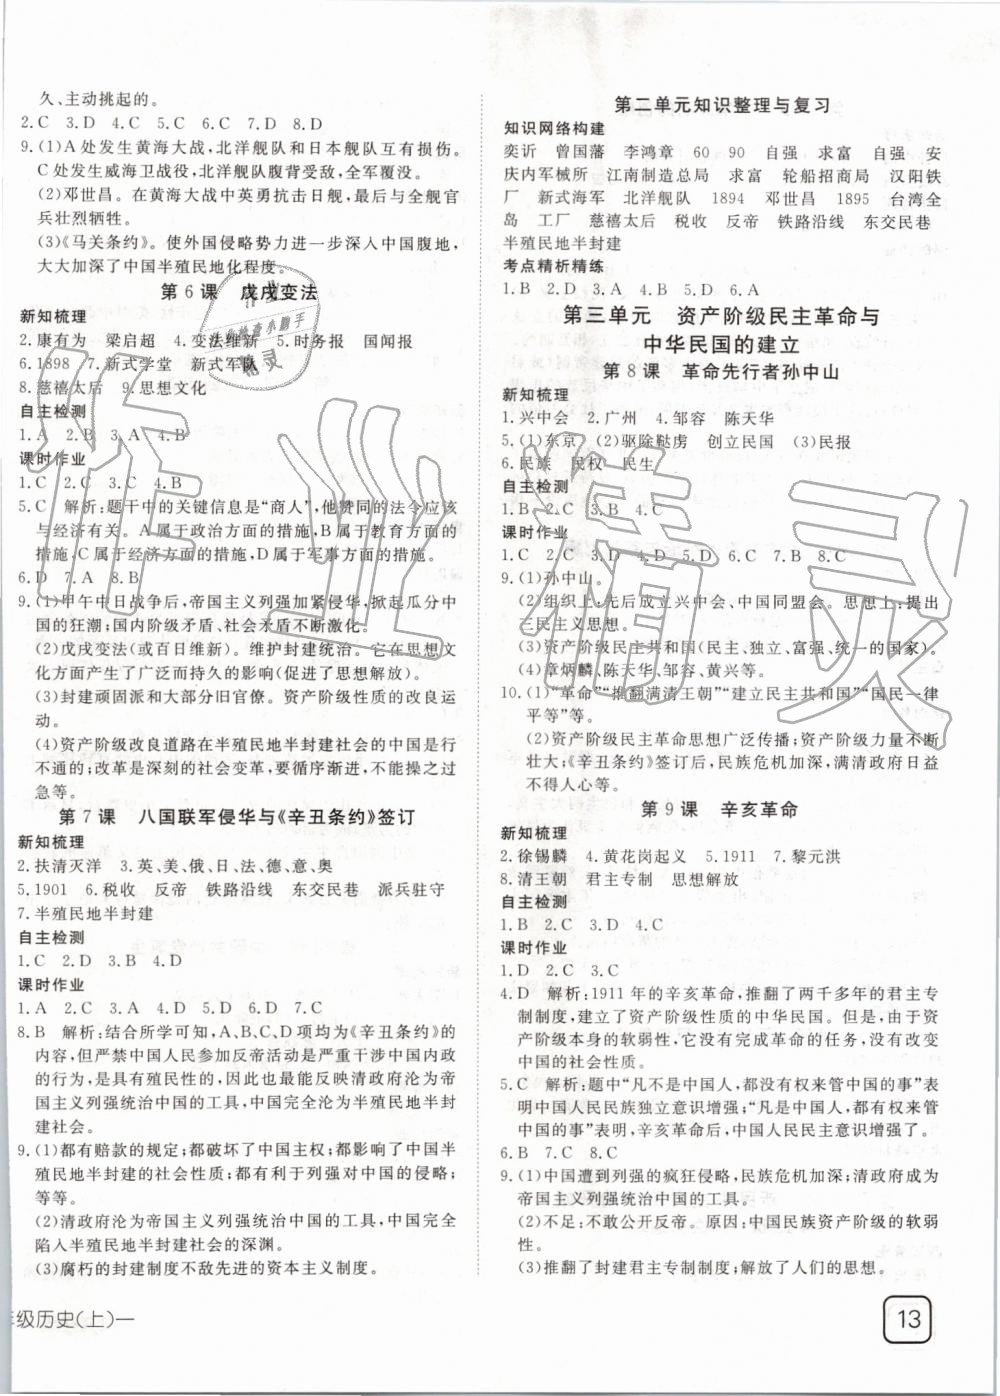 久、主动挑起的。
2.C 3.D 4.C 5.C 6.C 7.D 8.D
9.(1)A处发生黄海大战,北洋舰队和日本舰队互有损伤。
C处发生威海卫战役,北洋舰队腹背受敌,全军覆没。
(2)邓世昌。在黄海大战中英勇抗击日舰,与全舰官
兵壮烈牺牲。
(3)《马关条约》。使外国侵略势力进一步深入中国腹地,
大大加深了中国半殖民地化程度。
第6课 戊戌变法
新知梳理
2.康有为 梁启超 4.变法维新 5.时务报 国闻报
6.1898 7.新式学堂 新式军队
8.慈禧太后 9.思想文化
自主检测
1.A 2.B 3.A 4.B
课时作业
1.C 2.C 3.C 4.B
5.C 解析:题干中的关键信息是“商人”,他赞同的法令应该
与经济有关。A属于政治方面的措施,B属于教育方面的
措施,C属于经济方面的措施,D属于军事方面的措施。
6.D 7.A 8.B
9.(1)甲午中日战争后,帝国主义列强加紧侵华,掀起瓜分中
国的狂潮;国内阶级矛盾、社会矛盾不断激化。
(2)戊戌变法(或百日维新)。维护封建统治。它在思想文
化方面产生了广泛而持久的影响(促进了思想解放)。
(3)封建顽固派和大部分旧官僚。资产阶级性质的改良运
动。
(4)资产阶级改良道路在半殖民地半封建社会的中国是行
不通的;改革是深刻的社会变革,要循序渐进,不能操之过
急等。
第7课 八国联军侵华与《辛丑条约》签订
新知梳理
2.扶清灭洋 3.英、美、俄、日、法、德、意、奥
5.1901 6.税收 反帝 铁路沿线 东交民巷 派兵驻守
7.半殖民地半封建
自主检测
1.C 2.D 3.B 4.D
课时作业
1.A 2.C 3.A 4.D 5.D 6.D 7.C
8.B 解析:结合所学可知,A、B、C、D项均为《辛丑条约》的内
容,但严禁中国人民参加反帝活动是严重干涉中国内政
的行为,是具有殖民性的,因此也最能反映清政府沦为帝
国主义列强统治中国的工具,中国完全沦为半殖民地半封
建社会。
9.(1)都有赔款的规定;都破坏了中国主权;都影响了中国半
殖民地半封建的社会性质;都有利于列强对中国的侵略;
等等。
(2)清政府沦为帝国主义列强统治中国的工具,中国完全
陷入半殖民地半封建社会的深渊。
(3)腐朽的封建制度不敌先进的资本主义制度。
年级历史(上)一
第二单元知识整理与复习
知识网络构建
奕䜣 曾国藩 李鸿章 60 90 自强 求富 自强 安
庆内军械所 江南制造总局 求富 轮船招商局 汉阳铁
厂 新式海军 北洋舰队 1894 邓世昌 1895 台湾全
岛 工厂 慈禧太后 税收 反帝 铁路沿线 东交民巷
半殖民地半封建
考点精析精练
1.B 2.D 3.A 4.B 5.D 6.A
第三单元 资产阶级民主革命与
中华民国的建立
第8课 革命先行者孙中山
新知梳理
1.兴中会 2.广州 4.邹容 陈天华
5.(1)东京 (2)驱除鞑虏 创立民国 (3)民报
6.民族 民权 民生
自主检测
1.B 2.C 3.B 4.C
课时作业
1.C 2.C 3.D 4.D 5.D 6.D 7.B 8.C
9.(1)孙中山。
(2)组织上:先后成立兴中会、中国同盟会。思想上:提出
三民主义思想。
(3)资产阶级民主共和国(民主、独立、富强、统一的国家)。
(4)章炳麟、陈天华、邹容、黄兴等。
10.(1)“革命”“推翻满清王朝”“建立民主共和国”“国民一律
平等”等。
(2)资产阶级民主革命思想广泛传播;资产阶级力量不断
壮大;《辛丑条约》签订后,民族危机加深;满清政府日益
不得人心等。
第9课 辛亥革命
新知梳理
2.徐锡麟 4.黄花岗起义 5.1911 7.黎元洪
8.清王朝 君主专制 思想解放
自主检测
1.B 2.C 3.D 4.C
课时作业
1.D 2.C 3.C
4.D 解析:1911年的辛亥革命,推翻了两千多年的君主专
制制度,建立了资产阶级性质的中华民国。但是,由于资
产阶级本身的软弱性,它没有完成革命的任务,没有改变
中国的社会性质。
5.C 解析:题中“凡不是中国人,都没有权来管中国的事”表
明中国人民民族独立意识增强;“凡是中国人,都有权来管
中国的事”表明,辛亥革命后,中国人民民主意识增强。
6.B 7.C 8.C
9.(1)中国遭到列强的疯狂侵略,民族危机加深;清政府成为
帝国主义列强统治中国的工具。
(2)不足:不敢公开反帝。原因:中国民族资产阶级的软弱
性。
(3)推翻了封建君主专制制度;解放了人们的思想等。
13
作业精灵